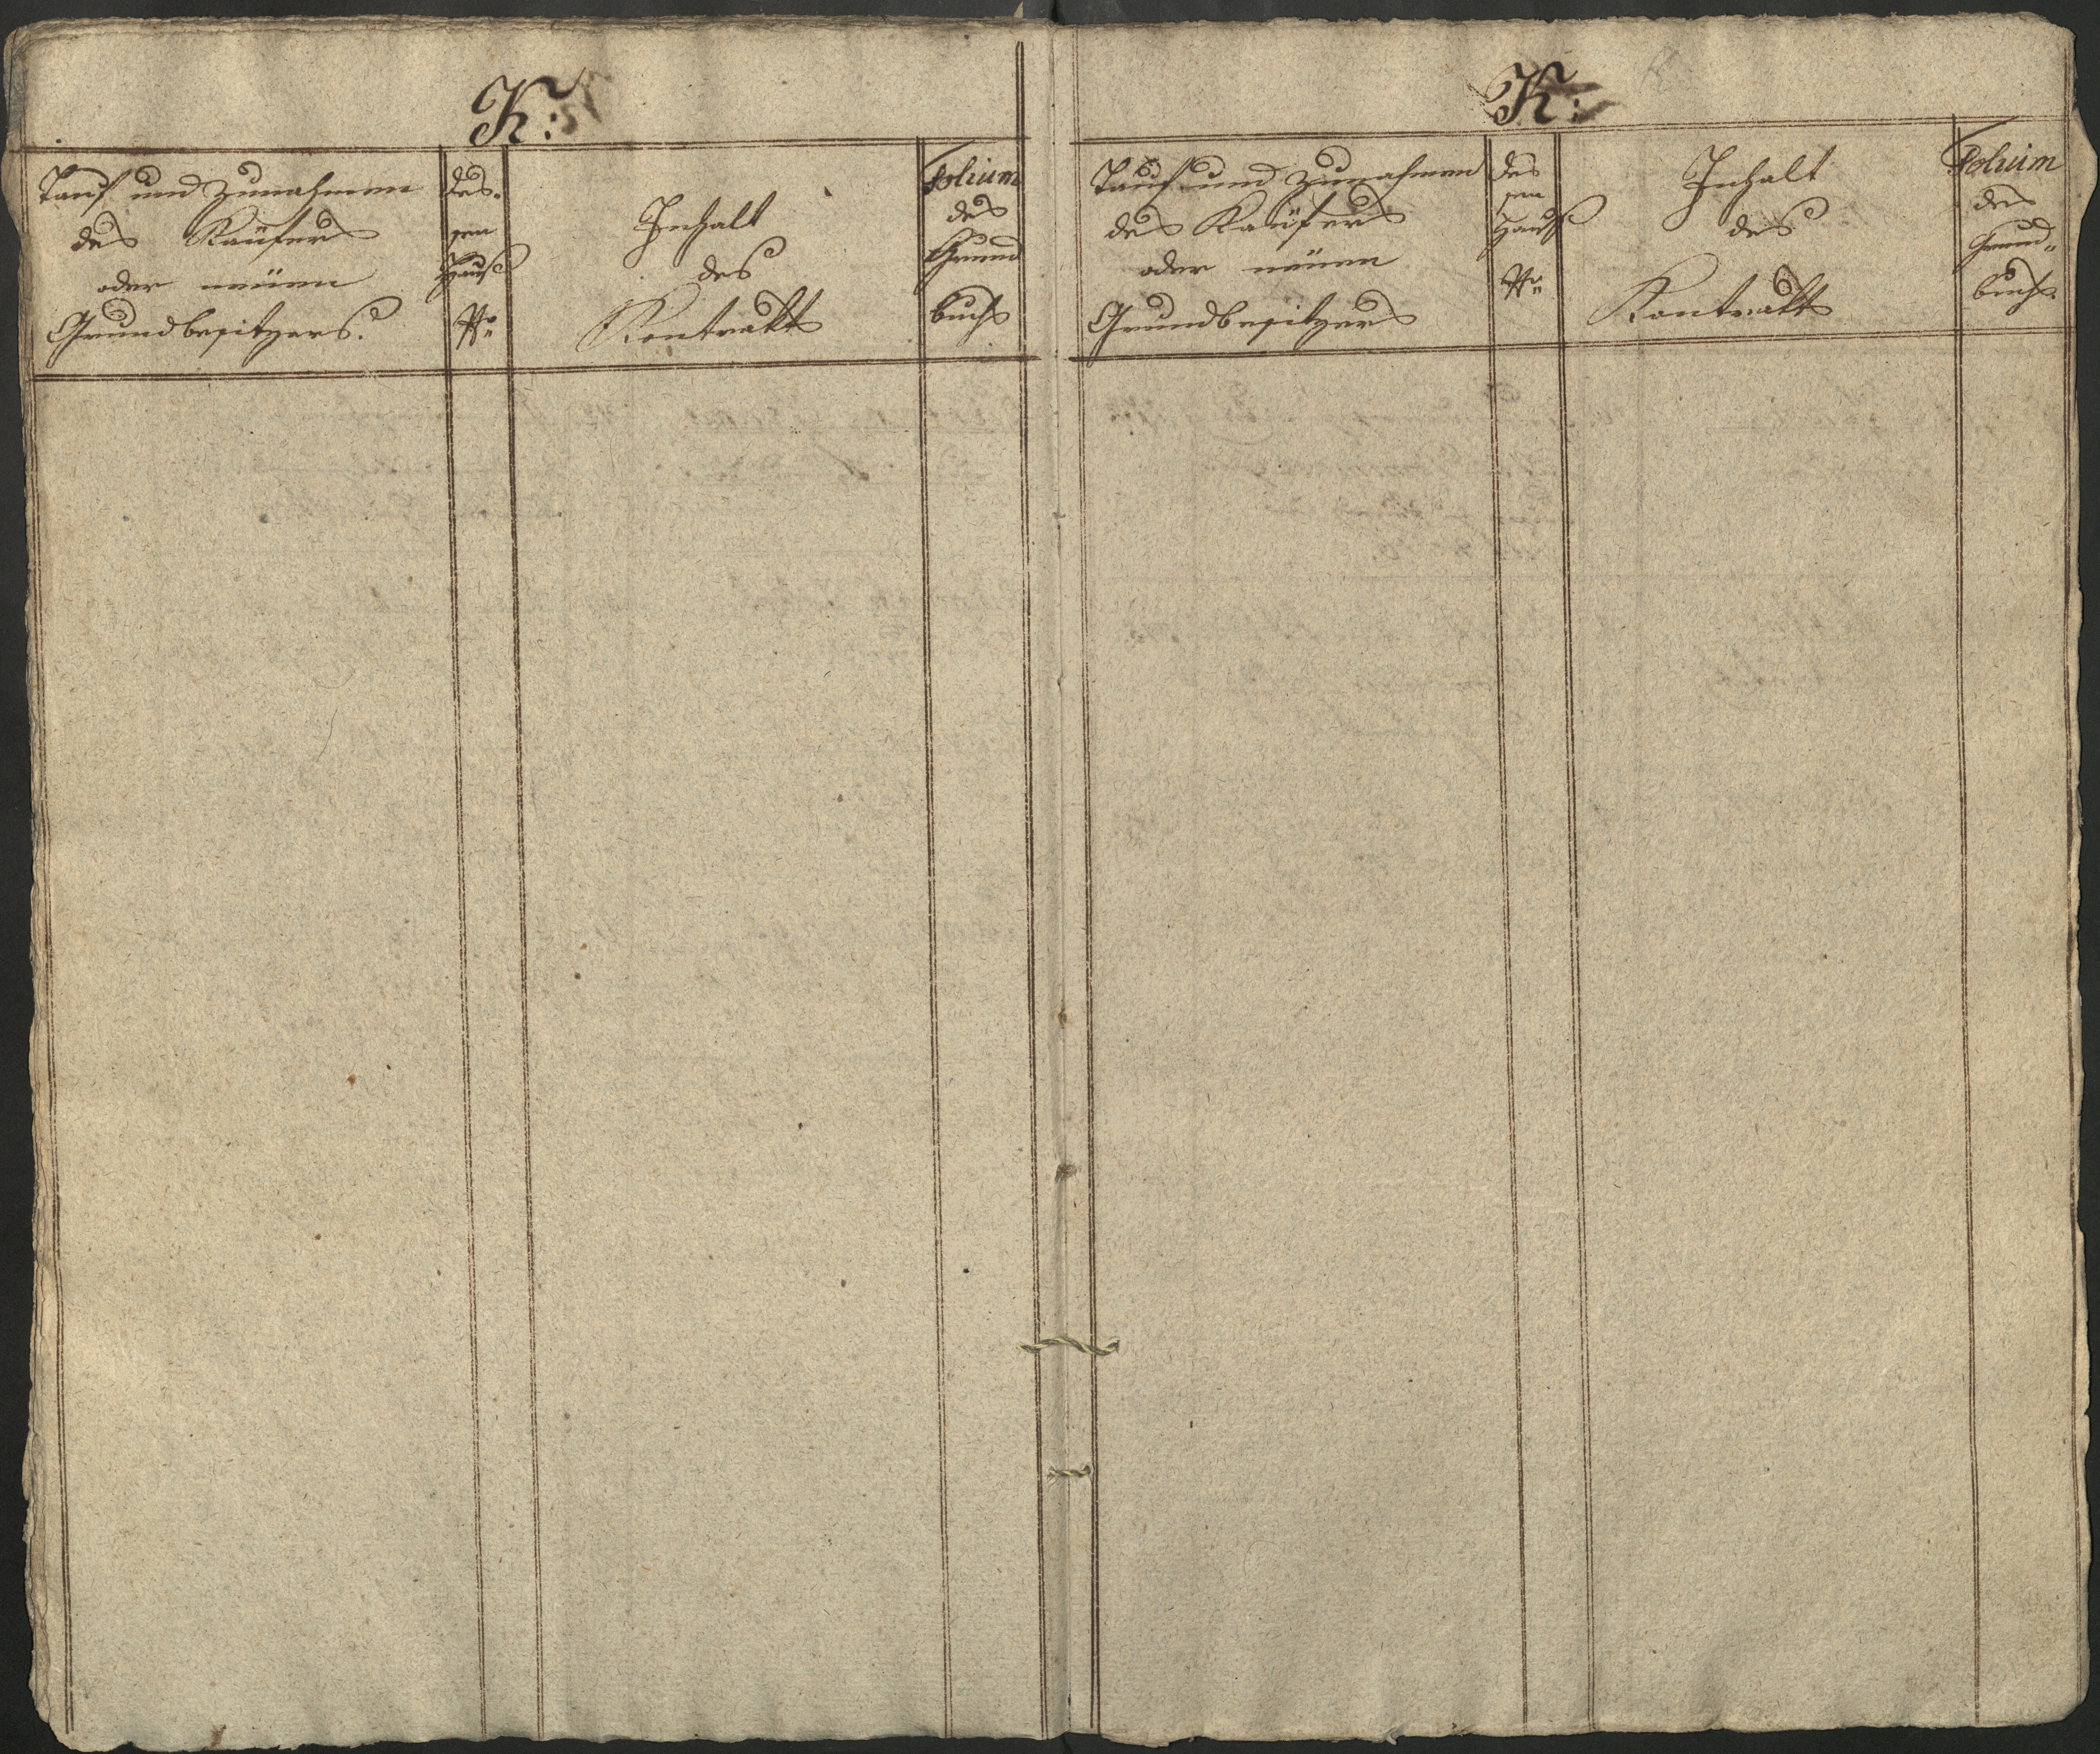 K:
Tauf und Zunahmen
des Kaüfers
oder neüen
Grundbesitzers.
des-
sen
Hauß
Nro
Inhalt
des
Kontrakts
Folium
des
Grund
buchs
K:
Tauf und Zunahmen
des Kaüfers
oder neüen
Grundbesitzers
des
sen
Hauß
Nro
Inhalt
des
Kontrakts
Folium
des
Grund„
buchs.